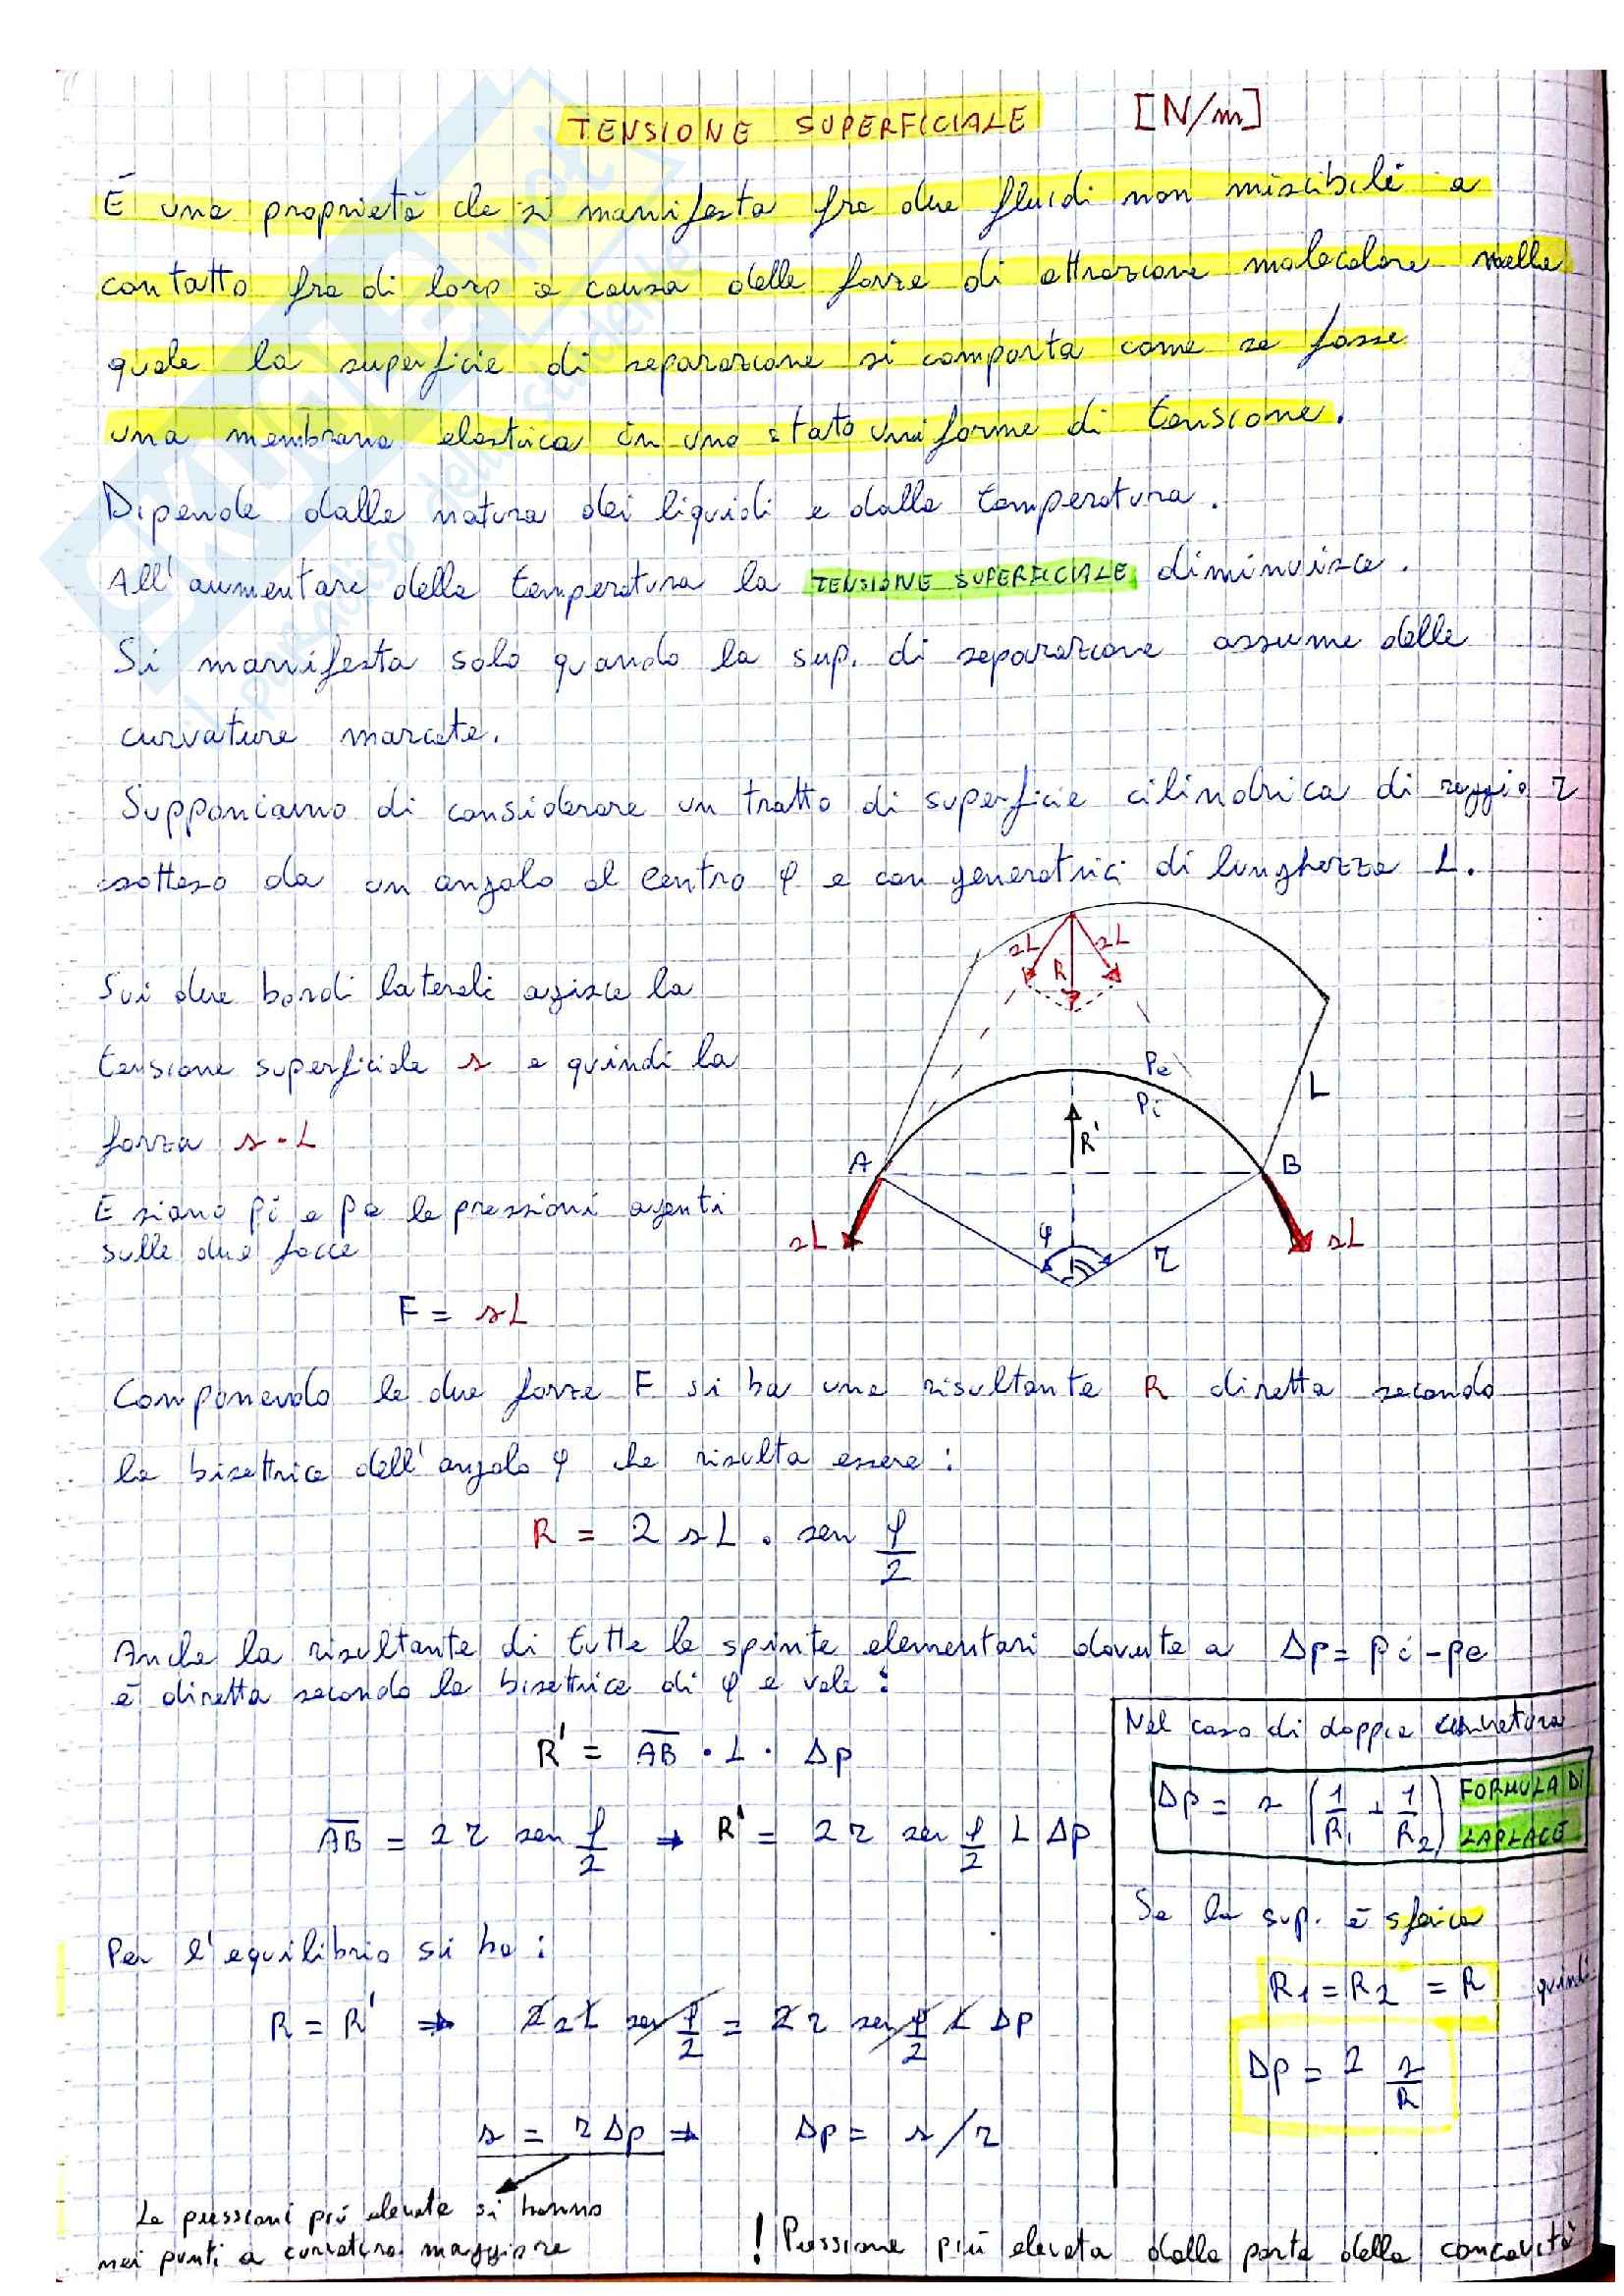 TENSIONE SUPERFICIALE [N/m]
È una proprietà che si manifesta fra due fluidi non miscibili a
contatto fra di loro a causa delle forze di attrazione molecolare nella
quale la superficie di separazione si comporta come se fosse
una membrana elastica in uno stato uniforme di tensione.
Dipende dalla natura dei liquidi e dalla temperatura.
All'aumentare della temperatura la TENSIONE SUPERFICIALE diminuisce.
Si manifesta solo quando la sup. di separazione assume delle
curvature marcate.
Supponiamo di considerare un tratto di superficie cilindrica di raggio r
sotteso da un angolo al centro φ e con generatrici di lunghezza L.
Sui due bordi laterali agisce la
tensione superficiale s e quindi la
forza s·L
E siano pi e pe le pressioni agenti
sulle due facce
F = sL
sL sL
R
Pe
Pi
L
R'
A B
sL φ r sL
Componendo le due forze F si ha una risultante R diretta secondo
la bisettrice dell'angolo φ che risulta essere:
R = 2 s L · sen φ/2
Anche la risultante di tutte le spinte elementari dovute a Δp = pi - pe
è diretta secondo la bisettrice di φ e vale:
R' = AB · L · Δp
AB = 2 r sen φ/2 → R' = 2 r sen φ/2 L Δp
Per l'equilibrio si ha:
R = R' ⇒ 2 s L sen φ/2 = 2 r sen φ/2 L Δp
s = r Δp ⇒ Δp = s/r
Le pressioni più elevate si hanno
nei punti a curvatura maggiore
! Pressione più elevata dalla parte della concavità
Nel caso di doppia curvatura
Δp = s (1/R1 + 1/R2) FORMULA DI
LAPLACE
Se la sup. è sferica
R1 = R2 = R quindi
Δp = 2 s/R